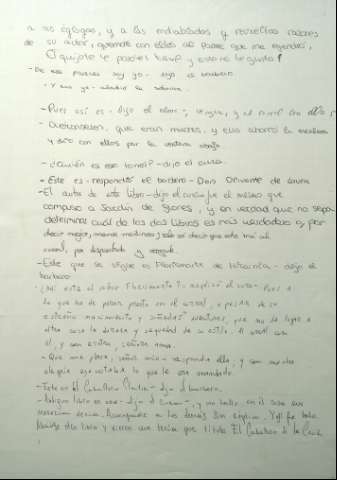 a sus églogas, y a las endiabladas y revueltas razones
de su autor, quemaré con ellos al padre que me engendró,
- De ese parecer soy yo - dijo el barbero.
- Y aun yo - añadió la sobrina.
- Pues así es - dijo el ama -, vengan, y al corral con ellos
- Diéronselos, que eran muchos, y ella ahorró la escalera
y dio con ellos por la ventana abajo.
- ¿Quién es ese tonel? - dijo el cura.
- Este es - respondió el barbero - Don Olivante de Laura
- El autor de este libro - dijo el cura - fue el mismo que
compuso a Jardín de flores, y en verdad que no sepa
determinar cuál de los dos libros es más verdadero o, por
decir mejor, menos mentiroso; sólo sé decir que este irá al
corral, por disparatado y arrogante.
- Este que se sigue es Florismarte de Hircania - dijo el
barbero
¿Ahí está el señor Florismarte? - replicó el cura - Pues a
fe que ha de parar presto en el corral, a pesar de su
extraño nacimiento y soñadas aventuras, que no da lugar a
otra cosa la dureza y sequedad de su estilo. Al corral con
él, y con estotro, señora ama.
- Que me place, señor mío - respondía ella, y con mucha
alegría ejecutaba lo que le era mandado.
- Este es El Caballero Platir - dijo el barbero.
- Antiguo libro es ese - dijo el cura -, y no hallo en él cosa que
merezca venia. Acompañe a los demás sin réplica. Y así fue hecho.
Abrióse otro libro y vieron que tenía por título El Caballero de la Cruz